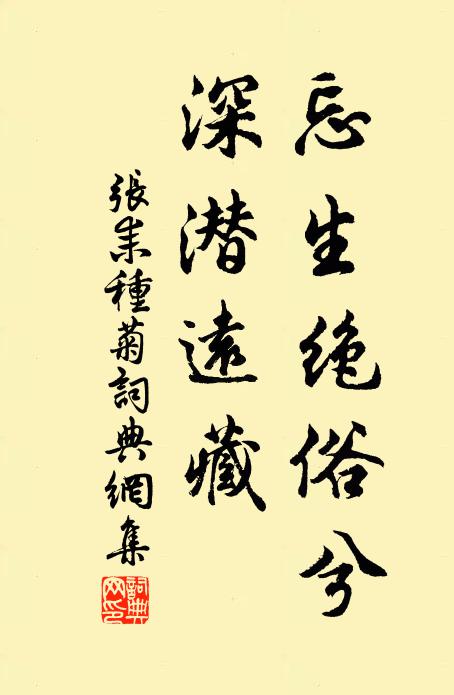 忘生绝俗兮
深潜遠藏
張耒種菊詞典網集
詞典網印